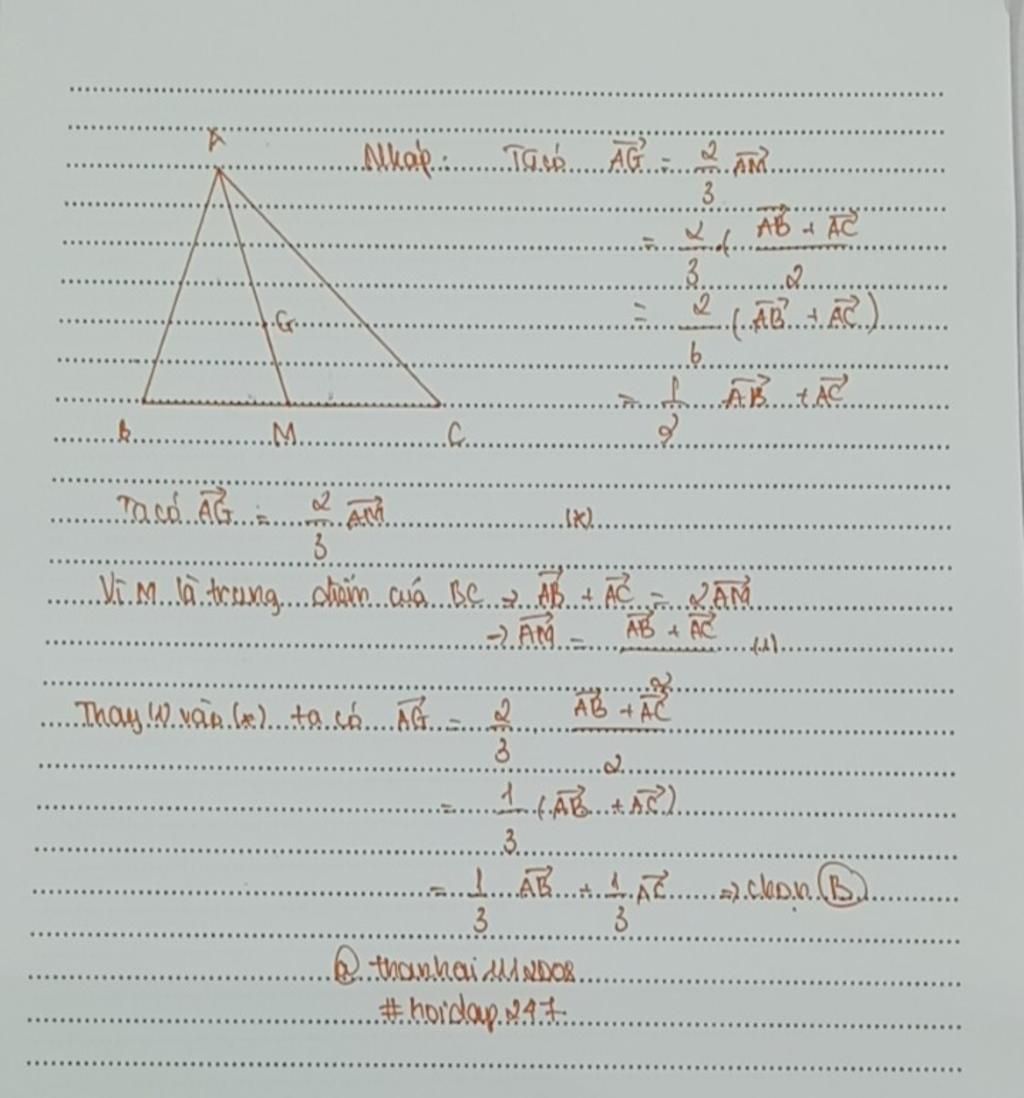 A
Nháp: Ta có AG→ = 2/3 AM→
= 2/3 . (AB→ + AC→)/2
G
= 2/6 (AB→ + AC→)
= 1/2 AB→ + AC→
B M C
Ta có AG→ = 2/3 AM→ (*)
Vì M là trung điểm của BC → AB→ + AC→ = 2AM→
→ AM→ = (AB→ + AC→)/2 (1)
Thay (1) vào (*) ta có AG→ = 2/3 . (AB→ + AC→)/2
= 1/3 (AB→ + AC→)
= 1/3 AB→ + 1/3 AC→ => chọn B
@thanhhai
#hoidap247